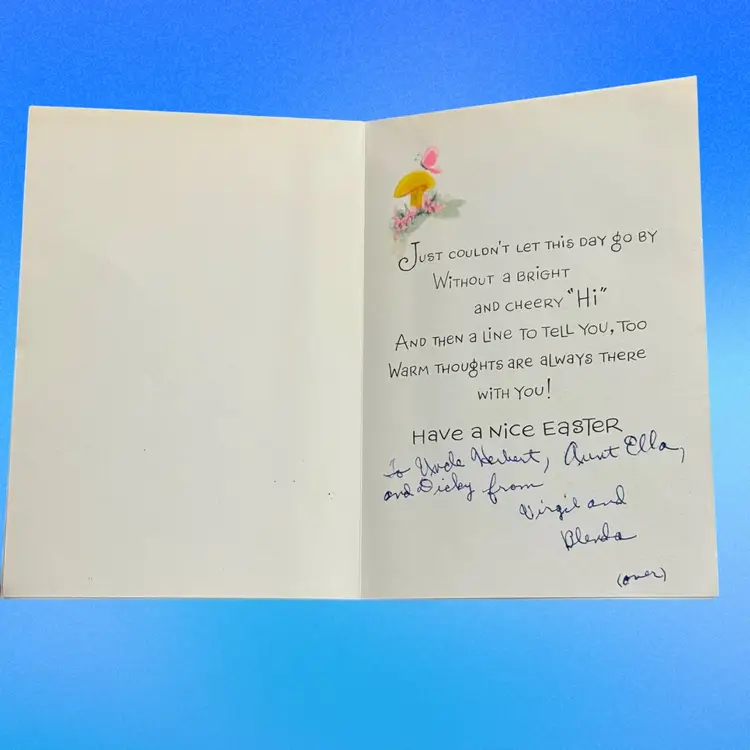 Just couldn't let this day go by
Without a bright
and cheery "Hi"
And then a line to tell you, too
Warm thoughts are always there
with you!
Have a Nice Easter
To Uncle Herbert, Aunt Ella,
and Dicky from
Virgil and
Blenda
(over)